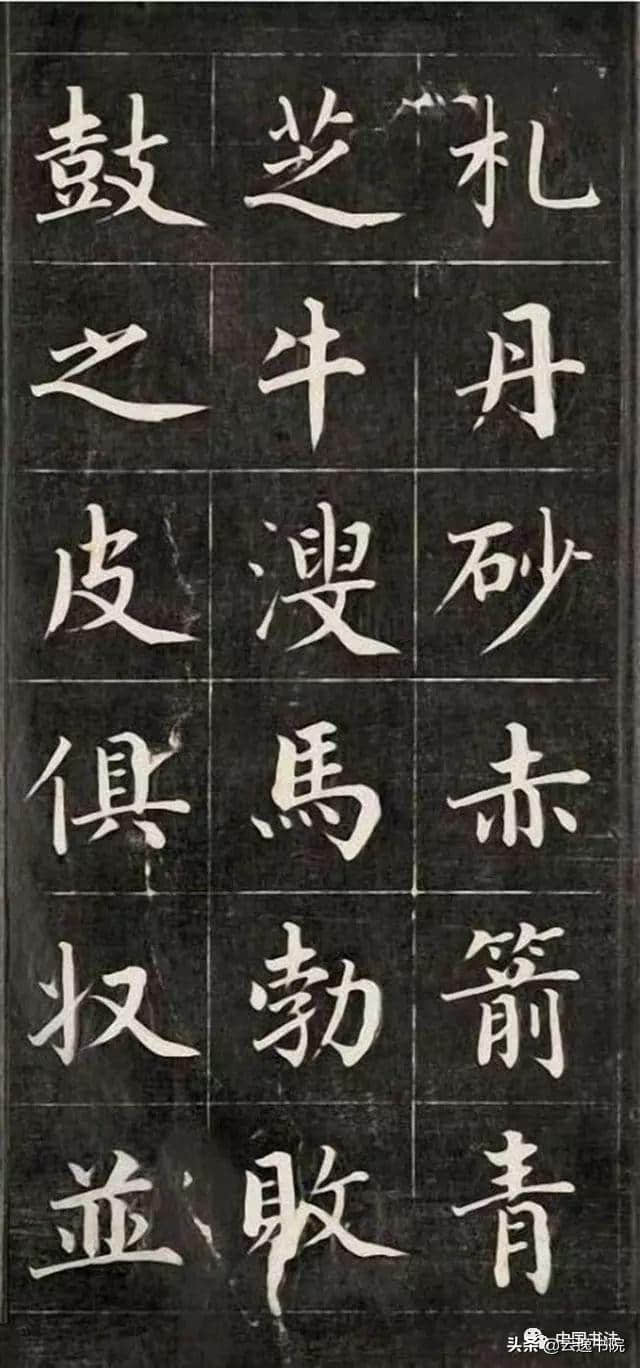 札丹砂赤箭青
芝牛溲馬勃敗
鼓之皮俱収並
中国书法
头条@云逸书院